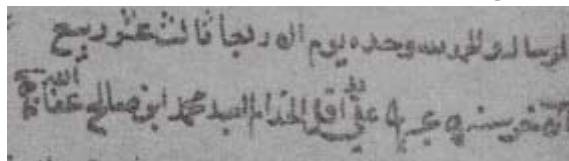 لرسالة والحمد لله وحده يوم الاربعا ثالث عشر ربيع
الآخر سنة على اقل الخدام العبد محمد ابن صالح عفا الله